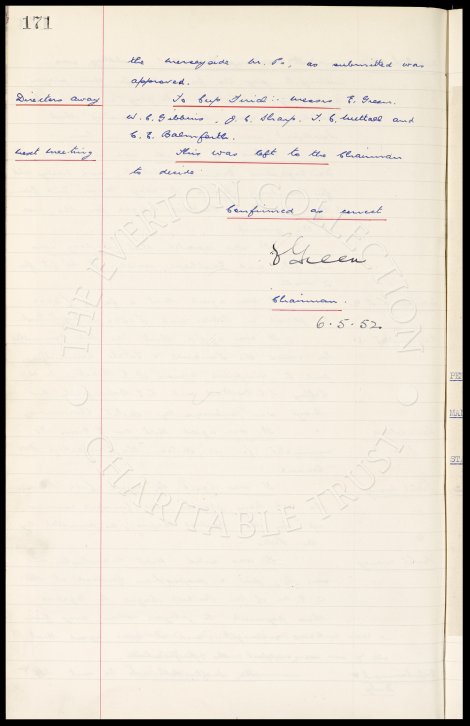 171
the merseyside M.Ps, as submitted was
approved.
Directors away
To Cup Final:- messrs E. Green.
W. C. Gibbins, J. C. Sharp, T. C. Nuttall and
C. E. Balmforth.
next meeting
This was left to the Chairman
to decide.
Confirmed as correct
E Green
Chairman.
6.5.52.
THE EVERTON COLLECTION
CHARITABLE TRUST
PE
MA
STA